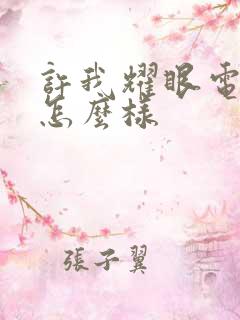 許我耀眼電
怎麼樣
張子翼